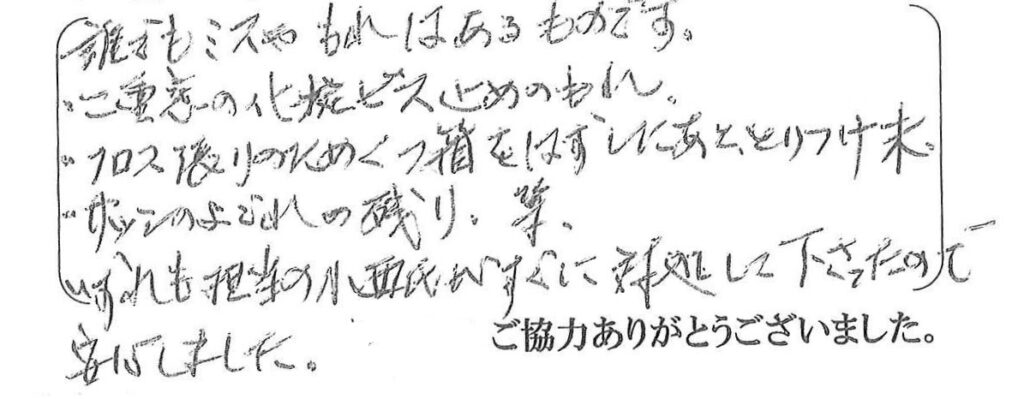 誰でもミスやもれはあるものです。
・二重窓の化粧ビス止めのもれ。
・クロス張りのためくつ箱をはずしたあと、とりつけ未。
・サッシのよごれの残り、等、
いずれも担当の小西氏がすぐに対処して下さったので
安心しました。
ご協力ありがとうございました。